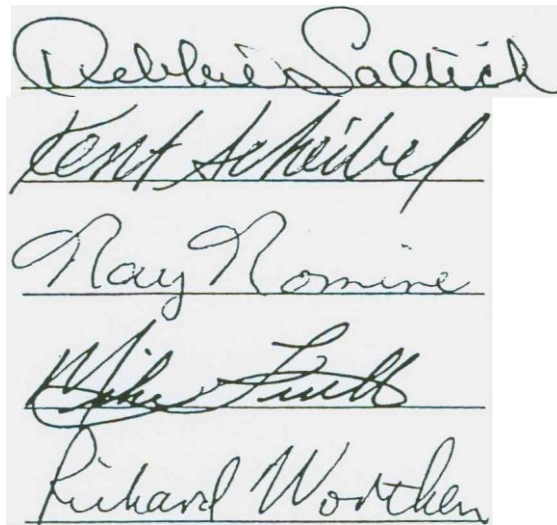 Debbie Saltich
Kent Scheibel
Ray Romine
Mike
Richard Worthen